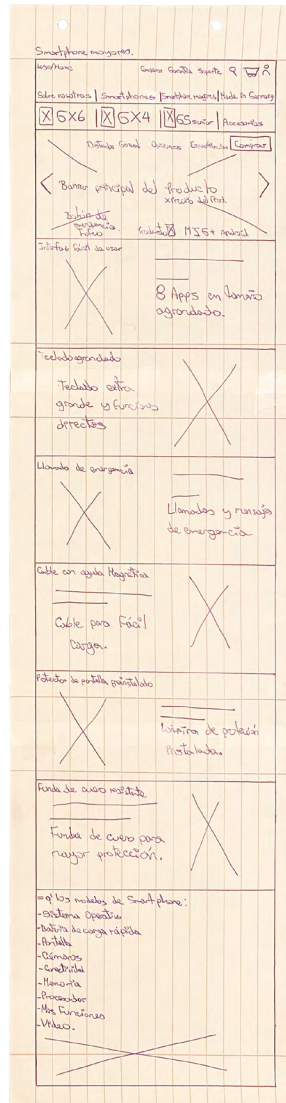 Smartphone mayores.
Logo/Home
Garantía Soporte
Sobre nosotros | Smartphones | Smartphone mayores | Made in Germany
X GX6 | X GX4 | X GS senior | Accesorios
General Opiniones Comprar
Banner principal del Producto
Botón de
emergencia
Producto MJS+ Android
Interfaz fácil de usar
8 Apps en tamaño
agrandado.
Teclado agrandado
Teclado extra
grande y funciones
directas
Llamada de emergencia
Llamadas y mensajes
de emergencia
Cable con ayuda Magnética
Cable para Fácil
Carga.
Protector de pantalla preinstalado
Lámina de protección
Instalada.
Funda de cuero resistente
Funda de cuero para
mayor protección.
= q' los modelos de Smartphone:
-Sistema Operativo
-Batería de carga rápida
-Pantalla
-Cámaras
-Conectividad
-Memoria
-Procesador
-Más Funciones
-Video.